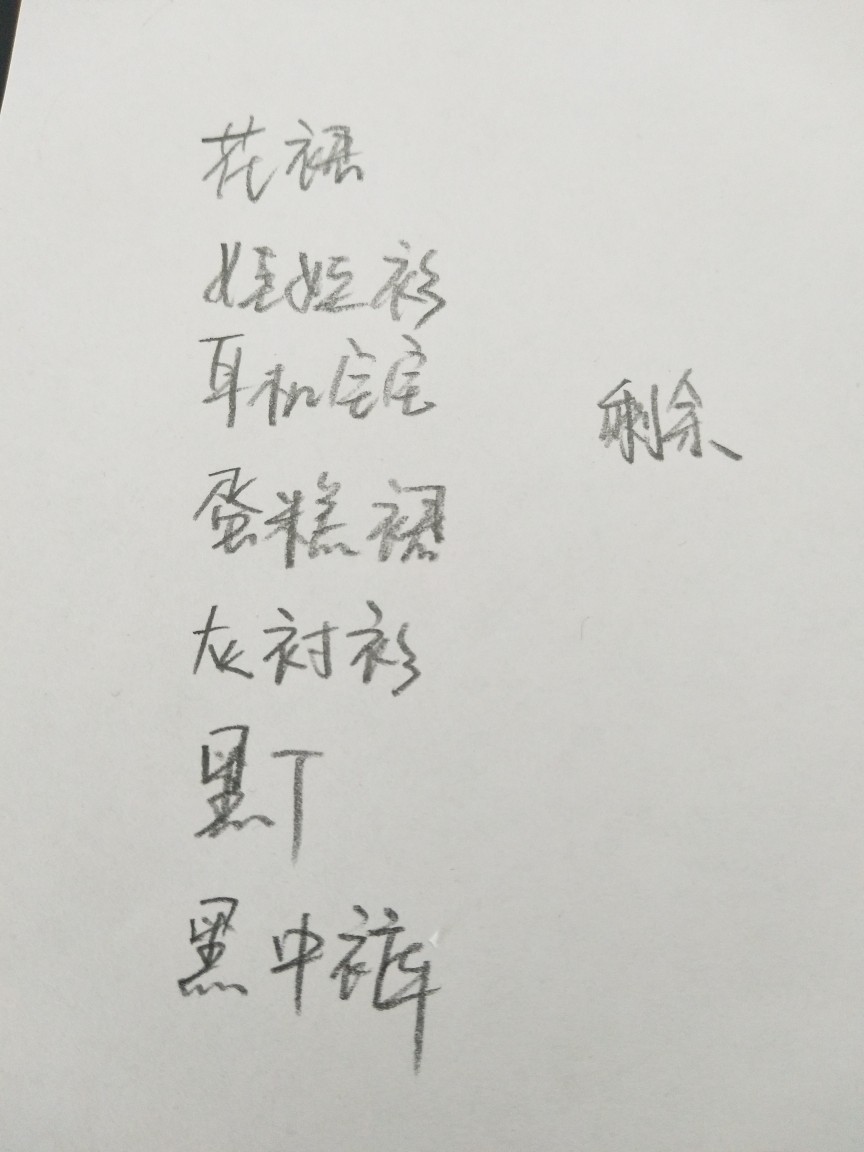 花裙
娃娃衫
耳机宝宝
剩余
蛋糕裙
灰衬衫
黑T
黑中裤